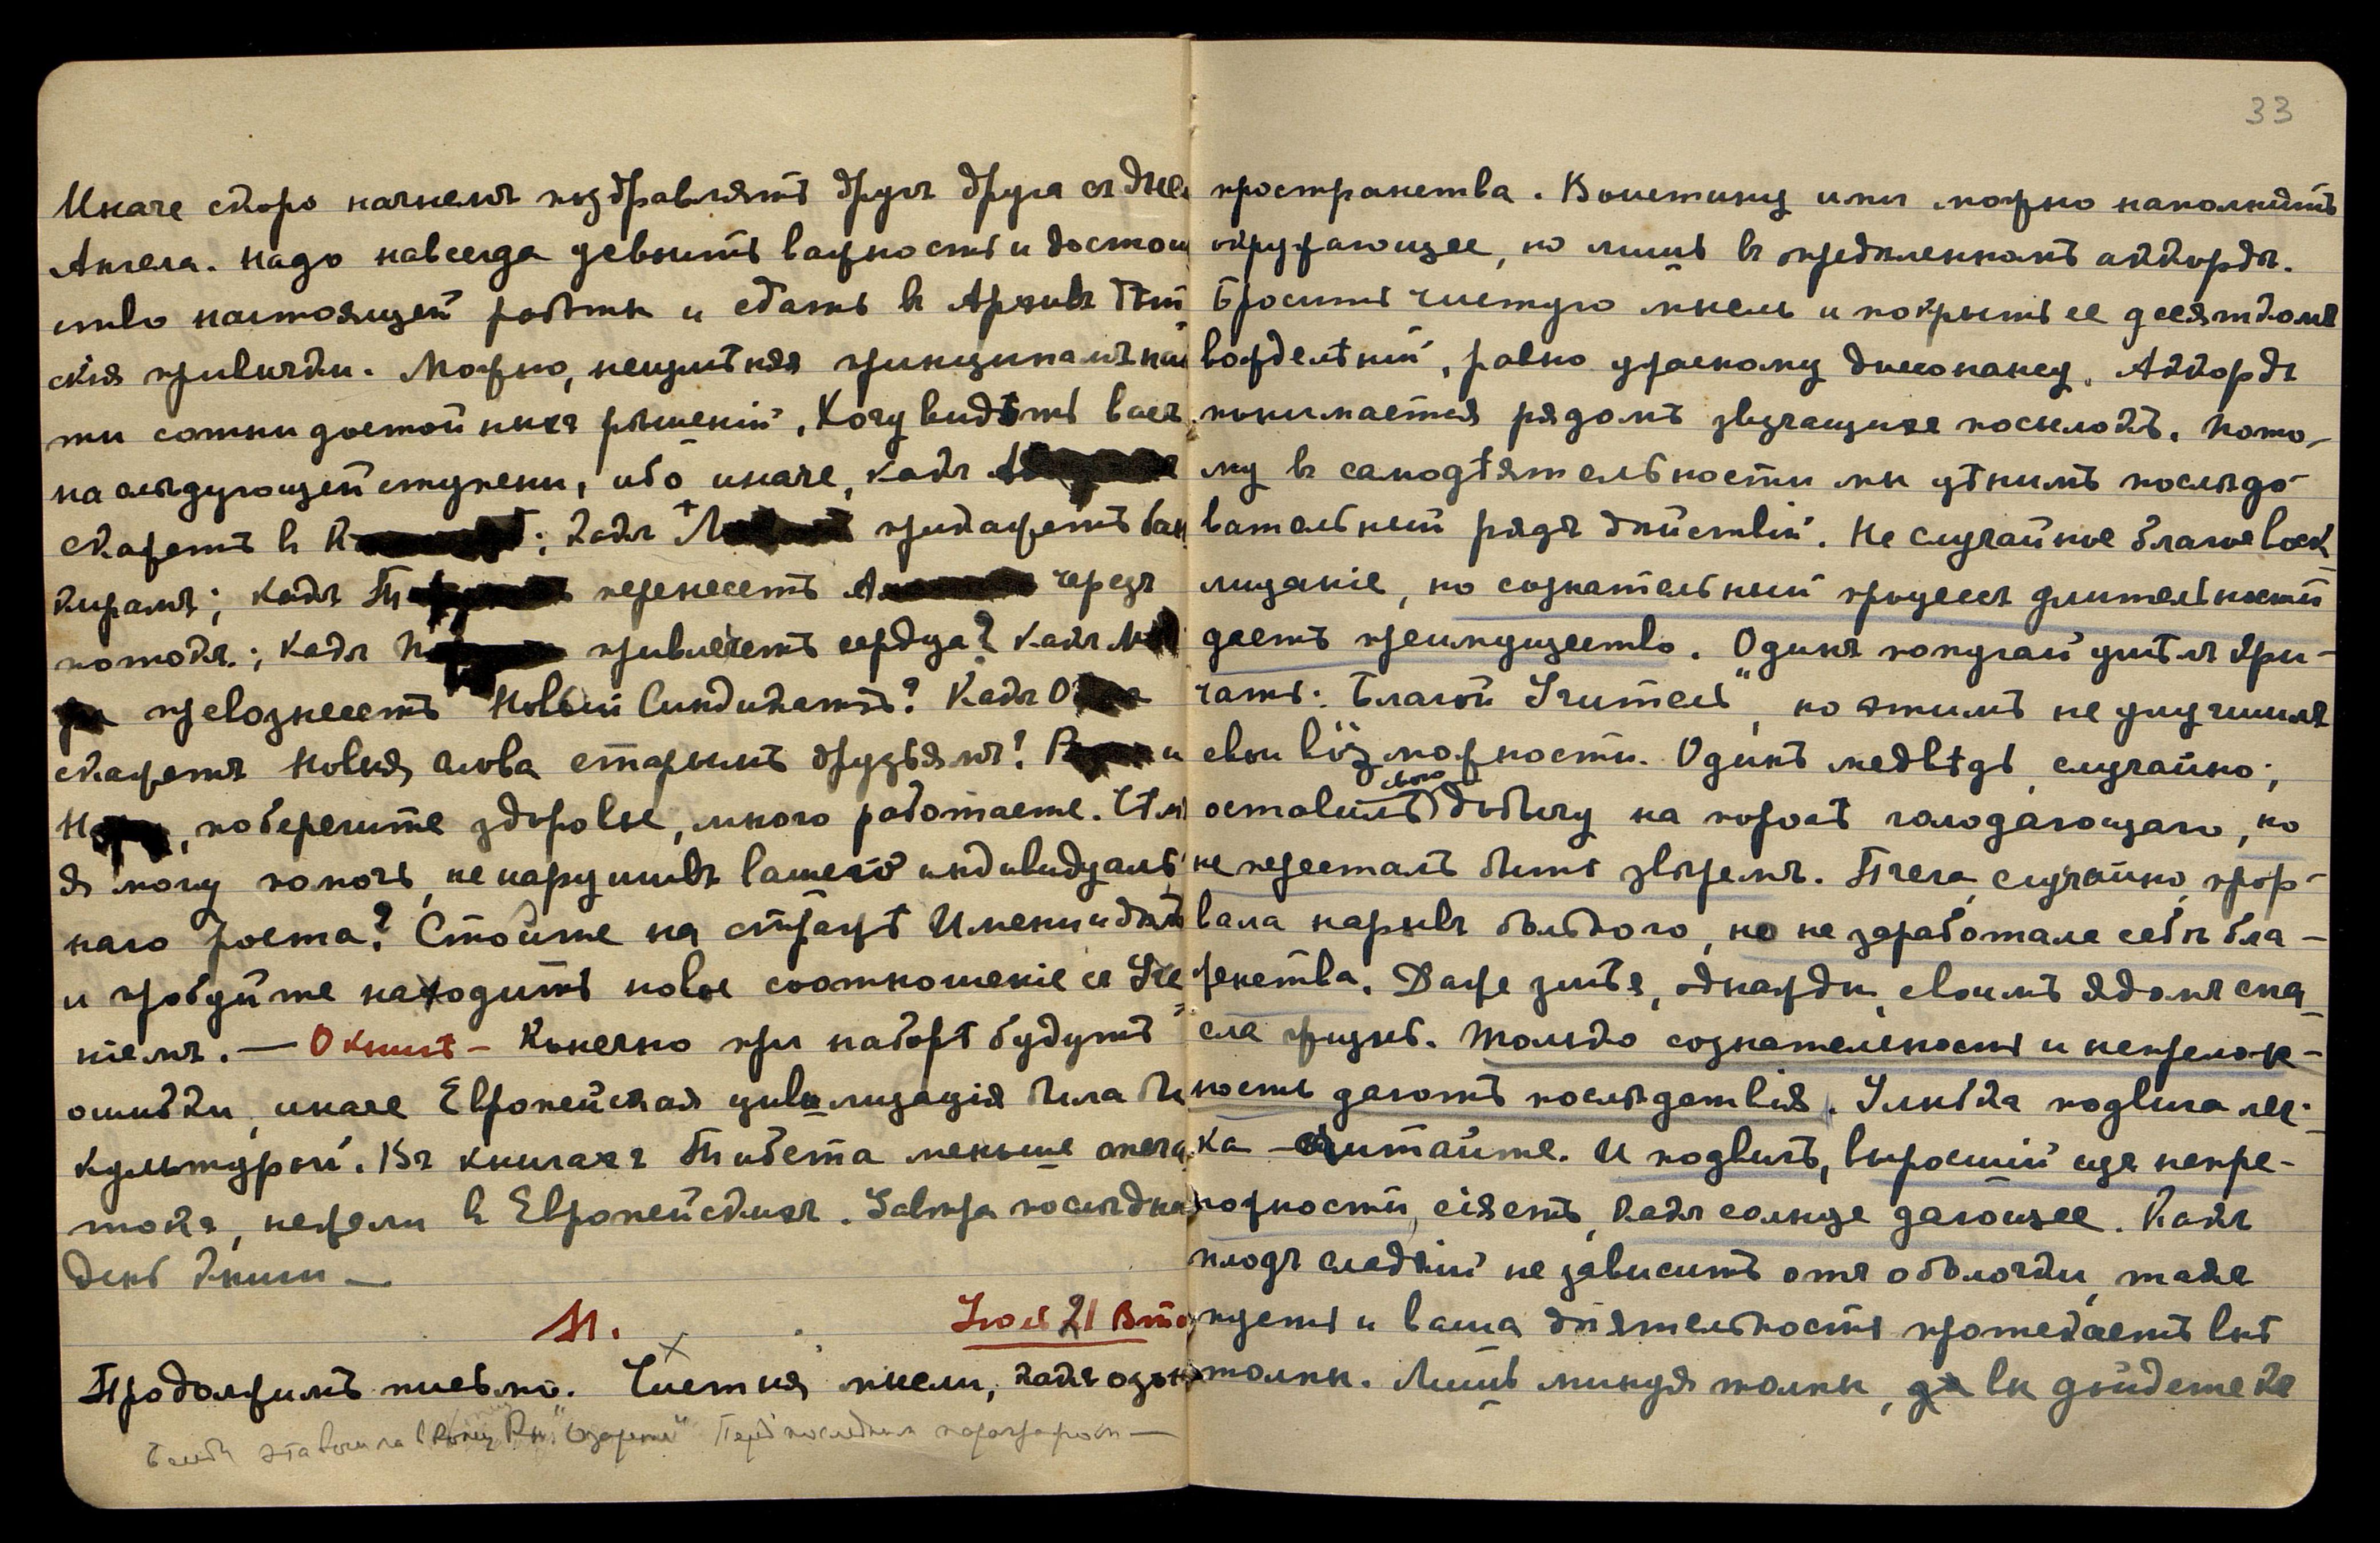 Иначе скоро начнемъ поздравлять другъ друга съ днем
Ангела. Надо навсегда уевоить важность и достои
ство настоящей работы и сдать въ Архивъ дѣт
скія привычки. Можно, неизмѣняя принципамъ най
ти сотни достойныхъ рѣшеній. Хочу видѣть васъ
на слѣдующей ступени, ибо иначе, какъ
скажетъ въ К ; какъ Л прикажетъ бан
кирамъ; какъ Т перенесетъ А черезъ
потокъ; какъ П привлечетъ сердца? Какъ М
ра превознесетъ Новый Синдикатъ? Какъ О
скажетъ новыя слова старымъ друзьямъ? Р и
Н , поберегите здоровье, много работаете. Чѣмъ
Я могу помочь, не нарушивъ вашего индивидуаль
наго роста? Стойте на стражѣ Имени и дѣлъ
и пробуйте находить новое соотношеніе съ Уче
ніемъ. — О книгѣ – Конечно при наборѣ будутъ
ошибки, иначе Европейская цивилизація была бы
культурой. Въ книгахъ Тибета меньше опеча
токъ, нежели въ Европейскихъ. Завтра послѣдній
день книги —
М. Іюль 21 Вто
Продолжимъ письмо. Чистыя мысли, какъ озонъ
33
пространства. Воистину ими можно наполнить
окружающее, но лишь въ опредѣленномъ аккордѣ.
Бросить чистую мысль и покрыть ее десяткомъ
вожделѣній, равно ужасному диссонансу. Аккордъ
понимается рядомъ звучащихъ посылокъ. Пото-
му въ самодѣятельности мы цѣнимъ послѣдо-
вательный рядъ дѣйствій. Не случайное благое воск-
лицаніе, но сознательный процессъ длительности
даетъ преимущество. Одинъ попугай умѣлъ кри-
чать: Благой Учитель", но этимъ не улучшилъ
свои возможности. Одинъ медвѣдь, случайно,
оставилъ свою добычу на порогѣ голодающаго, но
не пересталъ быть звѣремъ. Пчела, случайно, прор-
вала нарывъ больного, но не заработала себѣ бла-
женства. Даже змѣя, однажды, своимъ ядомъ спа-
сла жизнь. Только сознательность и непрелож-
ность даютъ послѣдствія. Улыбка подвига лег-
ка – считайте. И подвигъ, выросшій изъ непре-
ложности, сіяетъ, какъ солнце дающее. Какъ
плодъ сладкій не зависитъ отъ оболочки, такъ
пусть и ваша дѣятельность протекаетъ внѣ
толпы. Лишь минуя толпы, вы дойдете до